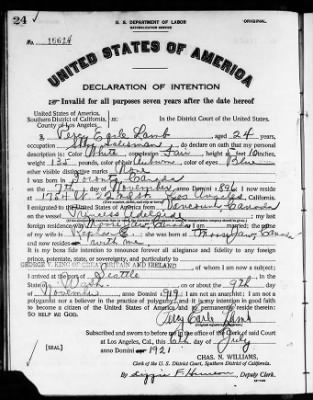 24
U. S. DEPARTMENT OF LABOR
NATURALIZATION SERVICE
ORIGINAL
No. 15614
UNITED STATES OF AMERICA
DECLARATION OF INTENTION
Invalid for all purposes seven years after the date hereof
United States of America,
Southern District of California,
County of Los Angeles,
In the District Court of the United States.
I, Percy Earle Lamb aged 24 years,
occupation Salesman, do declare on oath that my personal
description is: Color White, complexion Fair, height 5 feet inches,
weight 135 pounds, color of hair Auburn, color of eyes Blue
other visible distinctive marks None
I was born in Toronto Canada
on the 7th day of November, anno Domini 1896; I now reside
at 1754 W 22nd St Los Angeles, California.
I emigrated to the United States of America from Vancouver, Canada
on the vessel Princess Adelaide; my last
foreign residence was Moose Jaw, Canada; I am married; the name
of my wife is; she was born at Moose Jaw, Canada
and now resides with me
It is my bona fide intention to renounce forever all allegiance and fidelity to any foreign
prince, potentate, state, or sovereignty, and particularly to
GEORGE V. KING OF GREAT BRITAIN AND IRELAND
of whom I am now a subject;
I arrived at the port of Seattle
Wash., on or about the 9th day
of November, anno Domini 1919; I am not an anarchist; I am not a
polygamist nor a believer in the practice of polygamy; and it is my intention in good faith
to become a citizen of the United States of America and to permanently reside therein:
SO HELP ME GOD.
Percy Earle Lamb
Subscribed and sworn to before me in the office of the Clerk of said Court
at Los Angeles, Cal., this day of July
[SEAL]
anno Domini 1921
CHAS. N. WILLIAMS,
Clerk of the U. S. District Court, Southern District of California.
By, Deputy Clerk.